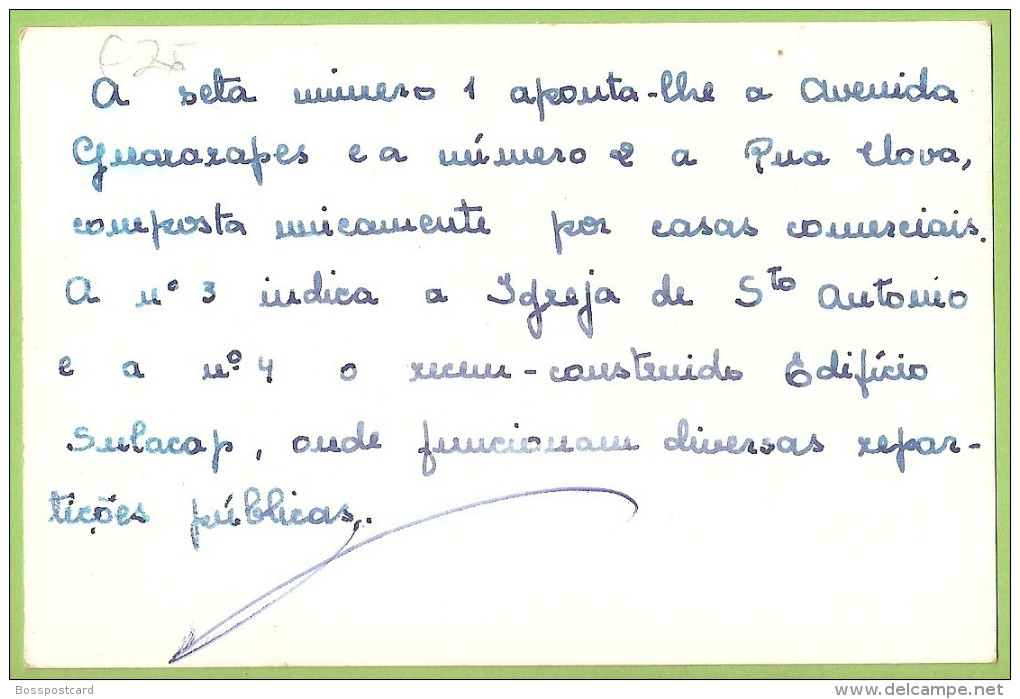 € 25
A seta número 1 aponta-lhe a Avenida
Guararapes e a número 2 a Rua Nova,
composta unicamente por casas comerciais.
A nº 3 indica a Igreja de Sto Antonio
e a nº 4 o recem-construido Edifício
Sulacap, onde funcionam diversas repar-
tições públicas.
Bosspostcard
www.delcampe.net